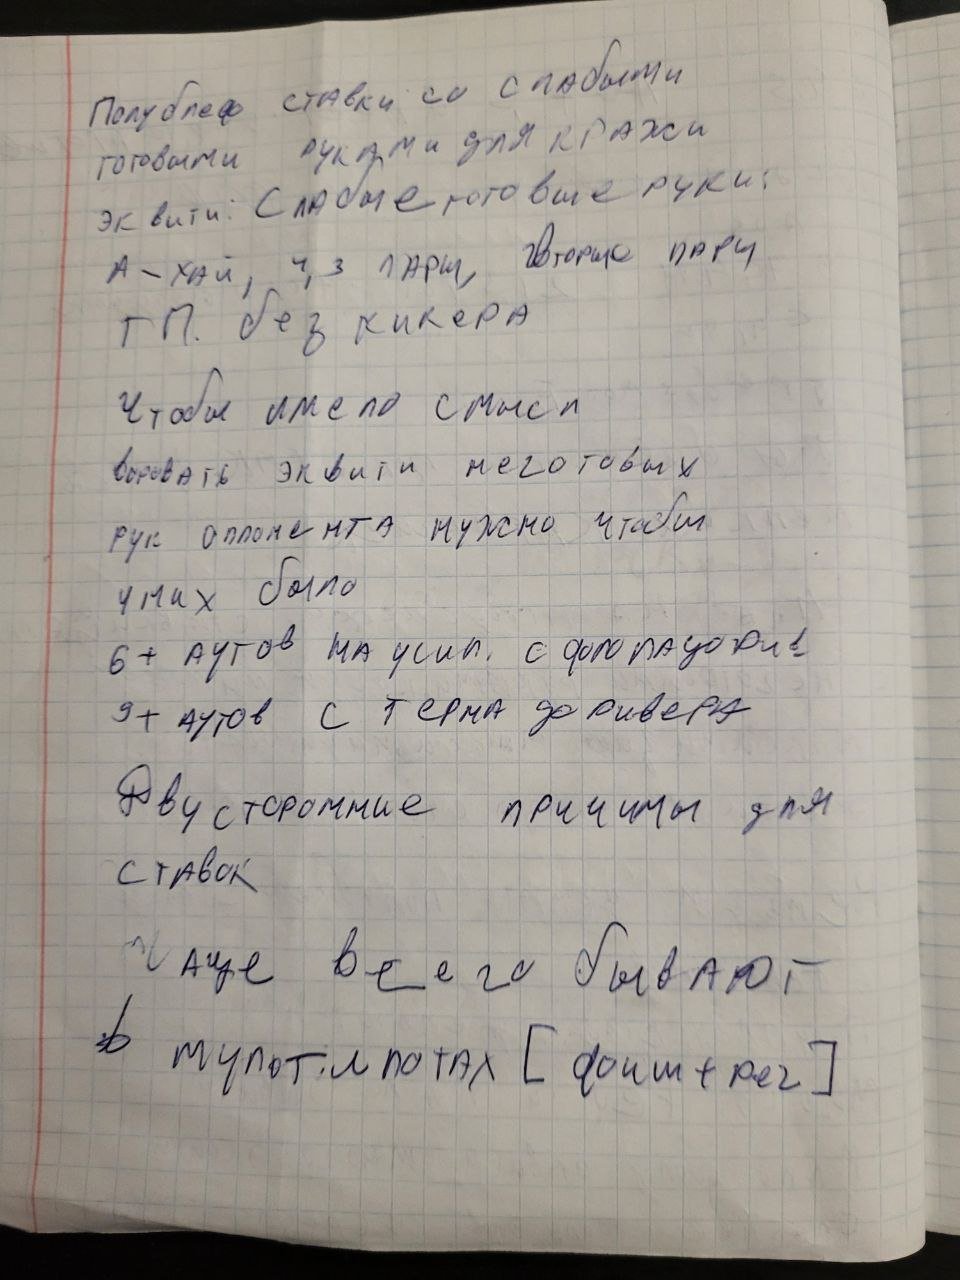 Полублеф ставки со слабыми
готовыми руками для кражи
эквити: Слабые готовые руки:
А-хай, 4, 3 пары, вторые пары
ТП. без кикера
Чтобы имело смысл
воровать эквити неготовых
рук оппонента нужно чтобы
у них было
6+ аутов на усил. с флопа до рив
9+ аутов с терна до ривера
Двусторонние причины для
ставок
Чаще всего бывают
в мультипотах [фиш + рег]